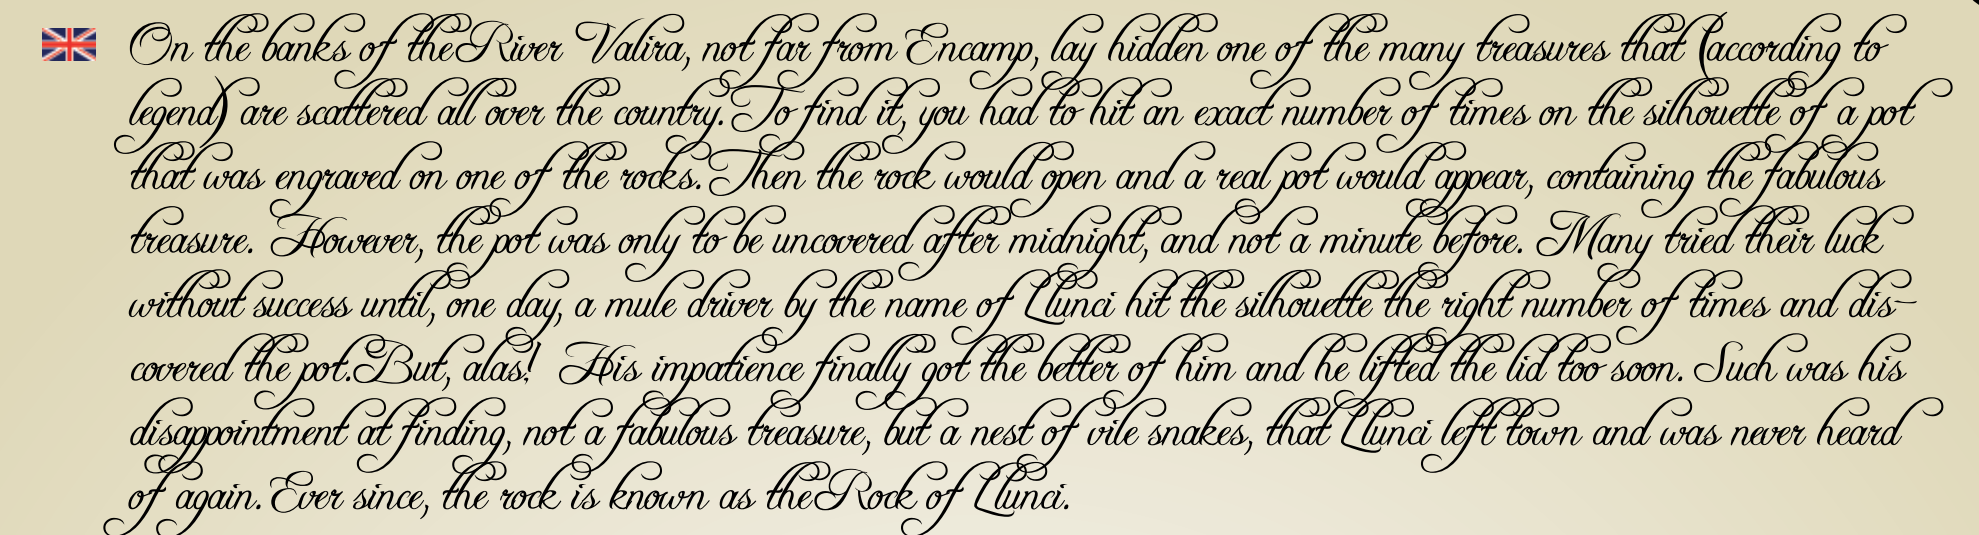 On the banks of the River Valira, not far from Encamp, lay hidden one of the many treasures that (according to
legend) are scattered all over the country. To find it, you had to hit an exact number of times on the silhouette of a pot
that was engraved on one of the rocks. Then the rock would open and a real pot would appear, containing the fabulous
treasure. However, the pot was only to be uncovered after midnight, and not a minute before. Many tried their luck
without success until, one day, a mule driver by the name of Llunci hit the silhouette the right number of times and dis-
covered the pot. But, alas! His impatience finally got the better of him and he lifted the lid too soon. Such was his
disappointment at finding, not a fabulous treasure, but a nest of vile snakes, that Llunci left town and was never heard
of again. Ever since, the rock is known as the Rock of Llunci.